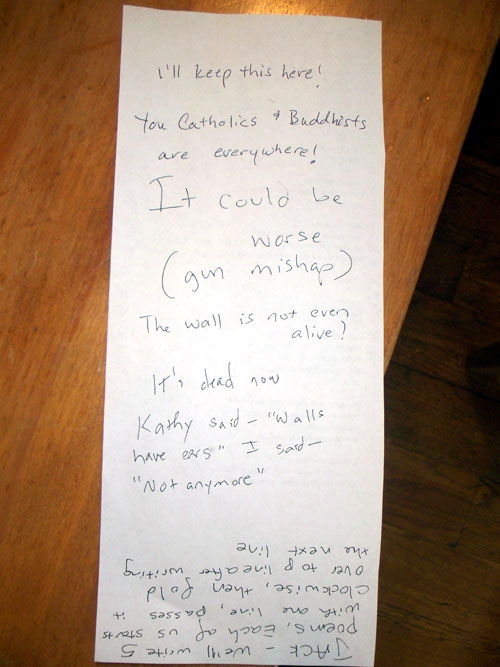 I'll keep this here!
You Catholics & Buddhists
are everywhere!
It could be
worse
(gun mishap)
The wall is not even
alive?
It's dead now
Kathy said – "Walls
have ears" I said –
"Not anymore"
JACK – We'll write 5
poems, Each of us starts
with one line, passes it
clockwise, then fold
over top line after writing
the next line